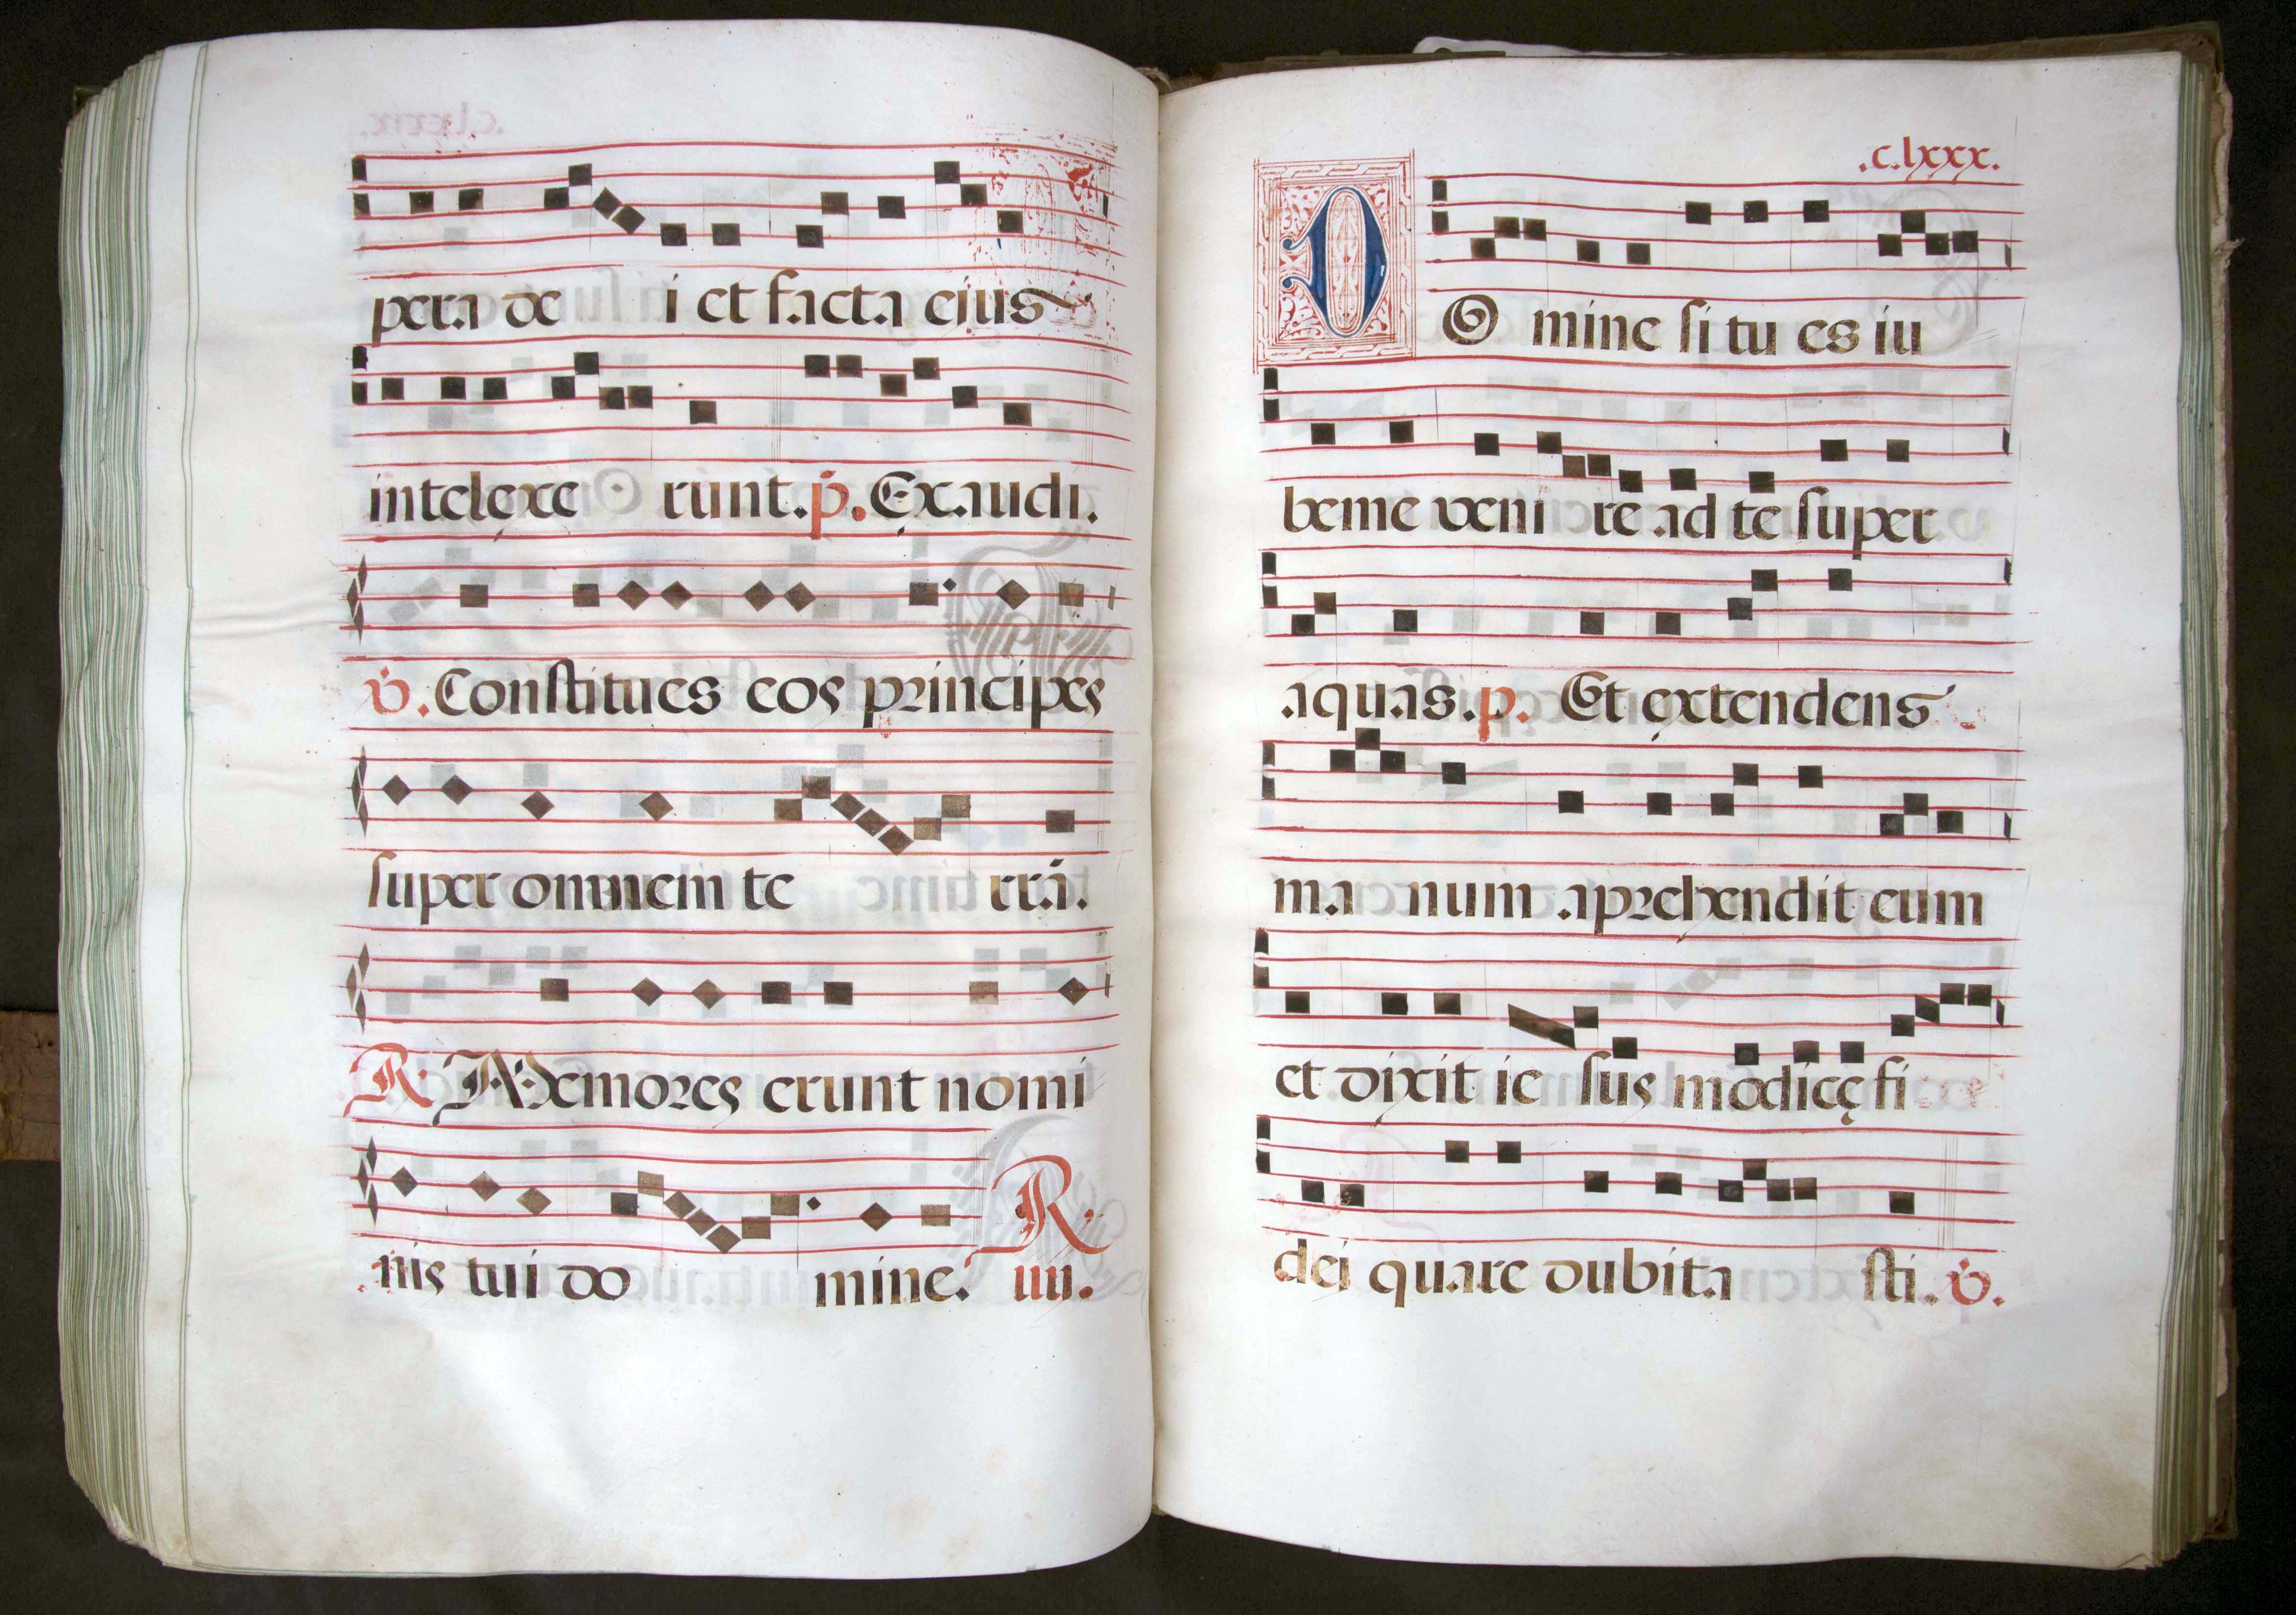 pera de i et facta ejus
intelexe runt. p. Exaudi.
v. Constitues eos principes
super omnem te rrā.
R. Memores erunt nomi
nis tui do mine. R. iiii.
.c.lxxx.
DO mine si tu es iu
beme veni re ad te super
aquas. p. Et extendens
ma num aprehendit eum
et dixit ie sus modicę fi
dei quare dubita sti. v.